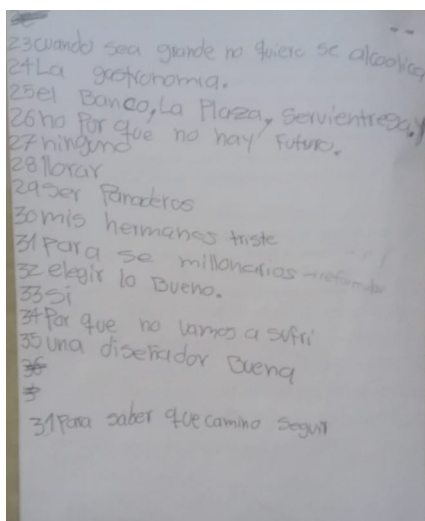 23 cuando sea grande no quiero se alcoolica
24 La gastronomia.
25 el Banco, La Plaza, Servientrega, y
26 no Por que no hay Futuro.
27 ninguno
28 llorar
29 ser Panaderos
30 mis hermanas triste
31 Para se millonarios
32 elegir lo Bueno.
33 Si
34 Por que no vamos a sufri
35 una diseñador Buena
31 Para saber que camino Seguir